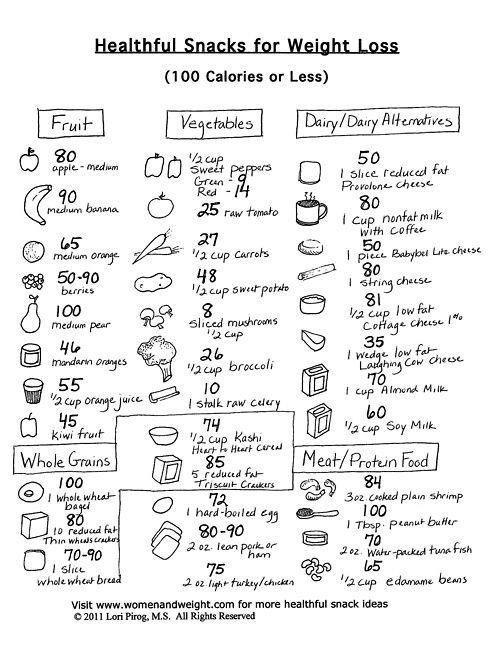 Healthful Snacks for Weight Loss
(100 Calories or Less)
Fruit
80
apple - medium
90
medium banana
65
medium orange
50-90
berries
100
medium pear
46
mandarin oranges
55
1/2 cup orange juice
45
Kiwi fruit
Vegetables
1/2 cup
Sweet peppers
Green - 9
Red - 14
25 raw tomato
27
1/2 cup carrots
48
1/2 cup sweet potato
8
Sliced mushrooms
1/2 cup
26
1/2 cup broccoli
10
1 stalk raw celery
Dairy/Dairy Alternatives
50
1 slice reduced fat
Provolone cheese
80
1 cup nonfat milk
with coffee
50
1 piece Babybel Lite cheese
80
1 string cheese
81
1/2 cup low fat
Cottage cheese 1%
35
1 wedge low fat
Laughing Cow cheese
70
1 cup Almond Milk
60
1/2 cup Soy Milk
Whole Grains
100
1 whole wheat
bagel
80
10 reduced fat
Thin wheats crackers
70-90
1 slice
whole wheat bread
74
1/2 cup Kashi
Heart to Heart Cereal
85
5 reduced fat
Triscuit Crackers
Meat/Protein Food
72
1 hard-boiled egg
80-90
2 oz. lean pork or
ham
75
2 oz. light turkey/chicken
84
3oz. cooked plain shrimp
100
1 Tbsp. peanut butter
70
2 oz. Water-packed tuna fish
65
1/2 cup edamame beans
Visit www.womenandweight.com for more healthful snack ideas
© 2011 Lori Pirog, M.S. All Rights Reserved